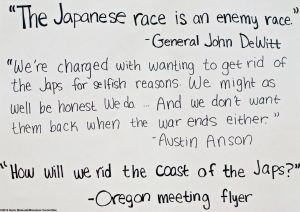 "The Japanese race is an enemy race."
-General John DeWitt
"We're charged with wanting to get rid of
the Japs for selfish reasons. We might as
well be honest. We do... And we don't want
them back when the war ends either."
-Austin Anson
"How will we rid the coast of the Japs?"
-Oregon meeting flyer